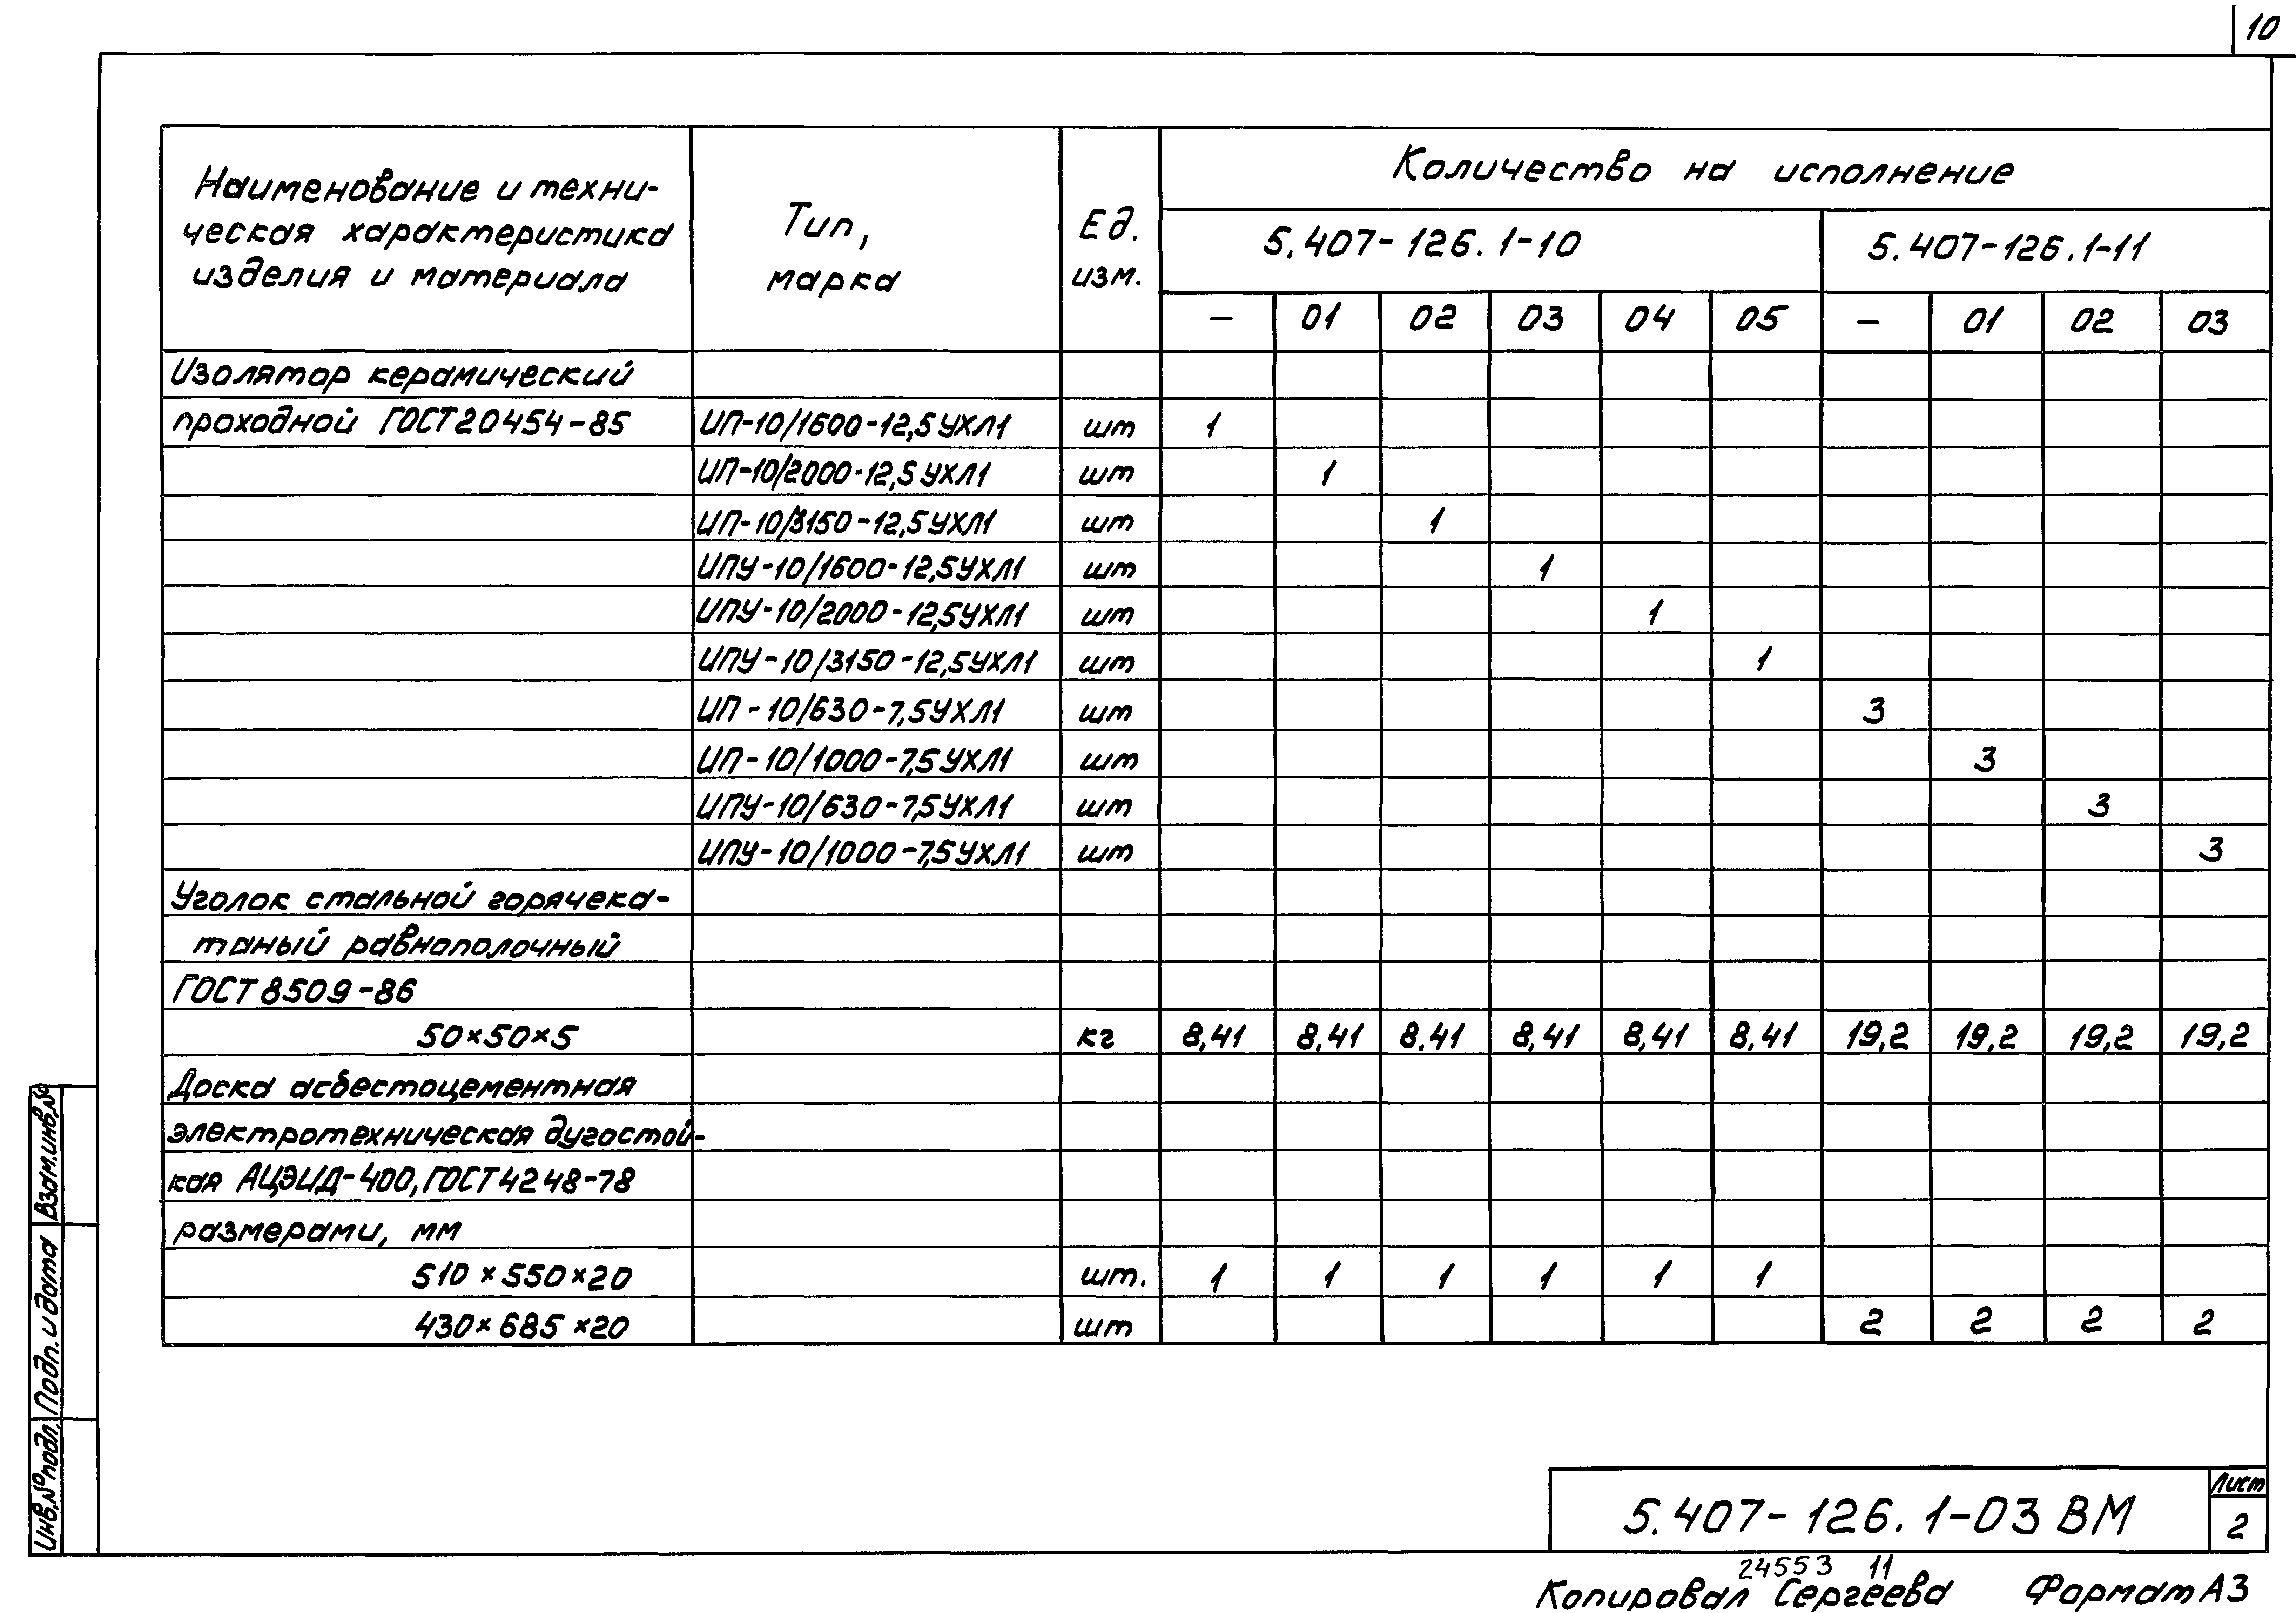 10
Наименование и техни-
ческая характеристика
изделия и материала
Тип,
марка
Ед.
изм.
Количество на исполнение
5.407-126.1-10 5.407-126.1-11
- 01 02 03 04 05 - 01 02 03
Изолятор керамический
проходной ГОСТ 20454-85 ИП-10/1600-12,5 УХЛ1 шт 1
ИП-10/2000-12,5 УХЛ1 шт 1
ИП-10/3150-12,5 УХЛ1 шт 1
ИПУ-10/1600-12,5 УХЛ1 шт 1
ИПУ-10/2000-12,5 УХЛ1 шт 1
ИПУ-10/3150-12,5 УХЛ1 шт 1
ИП-10/630-7,5 УХЛ1 шт 3
ИП-10/1000-7,5 УХЛ1 шт 3
ИПУ-10/630-7,5 УХЛ1 шт 3
ИПУ-10/1000-7,5 УХЛ1 шт 3
Уголок стальной горячека-
таный равнополочный
ГОСТ 8509-86
50×50×5 кг 8,41 8,41 8,41 8,41 8,41 8,41 19,2 19,2 19,2 19,2
Доска асбестоцементная
электротехническая дугостой-
кая АЦЭИД-400, ГОСТ 4248-78
размерами, мм
510×550×20 шт. 1 1 1 1 1 1
430×685×20 шт 2 2 2 2
Взам.инв.№
Подп. и дата
Инв.№ подл.
5.407-126.1-03 ВМ
Лист
2
24553 11
Копировал Сергеева Формат А3